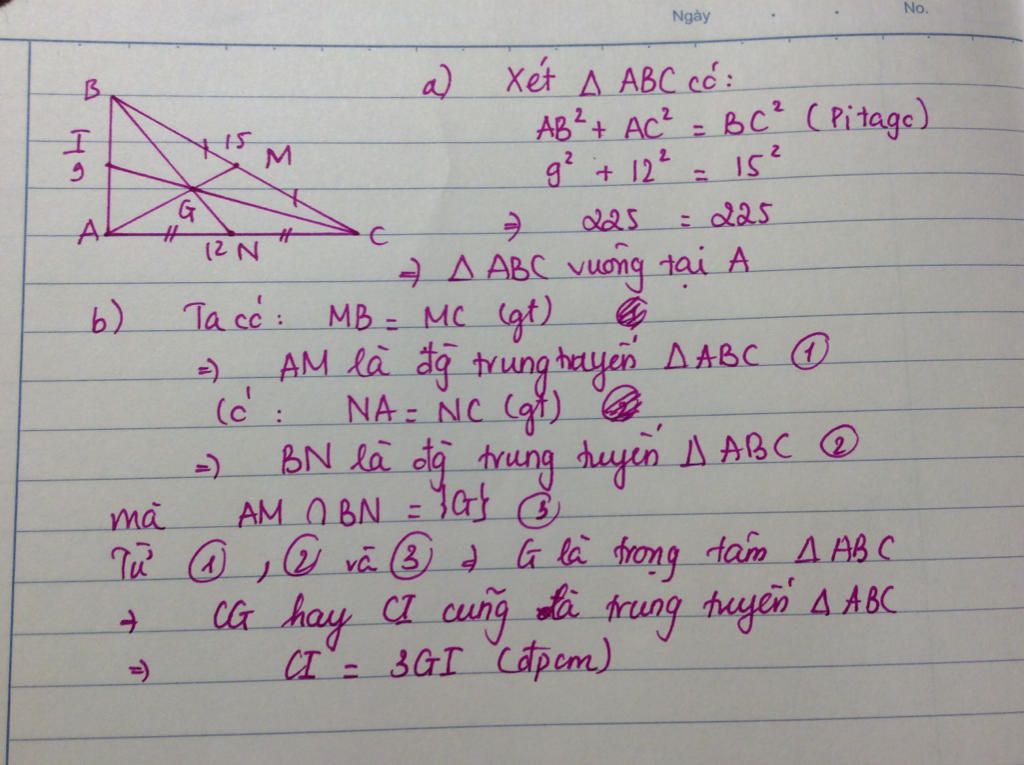 Ngày . . No.
B
I
9
15
M
G
A
12 N
C
a) Xét Δ ABC có:
AB² + AC² = BC² (Pitago)
9² + 12² = 15²
⇒ 225 = 225
⇒ Δ ABC vuông tại A
b) Ta có: MB = MC (gt)
⇒ AM là đg̀ trung tuyến Δ ABC ①
Có: NA = NC (gt)
⇒ BN là đg̀ trung tuyến Δ ABC ②
mà AM ∩ BN = {G} ③
Từ ①, ② và ③ ⇒ G là trọng tâm Δ ABC
⇒ CG hay CI cũng là trung tuyến Δ ABC
⇒ CI = 3GI (đpcm)